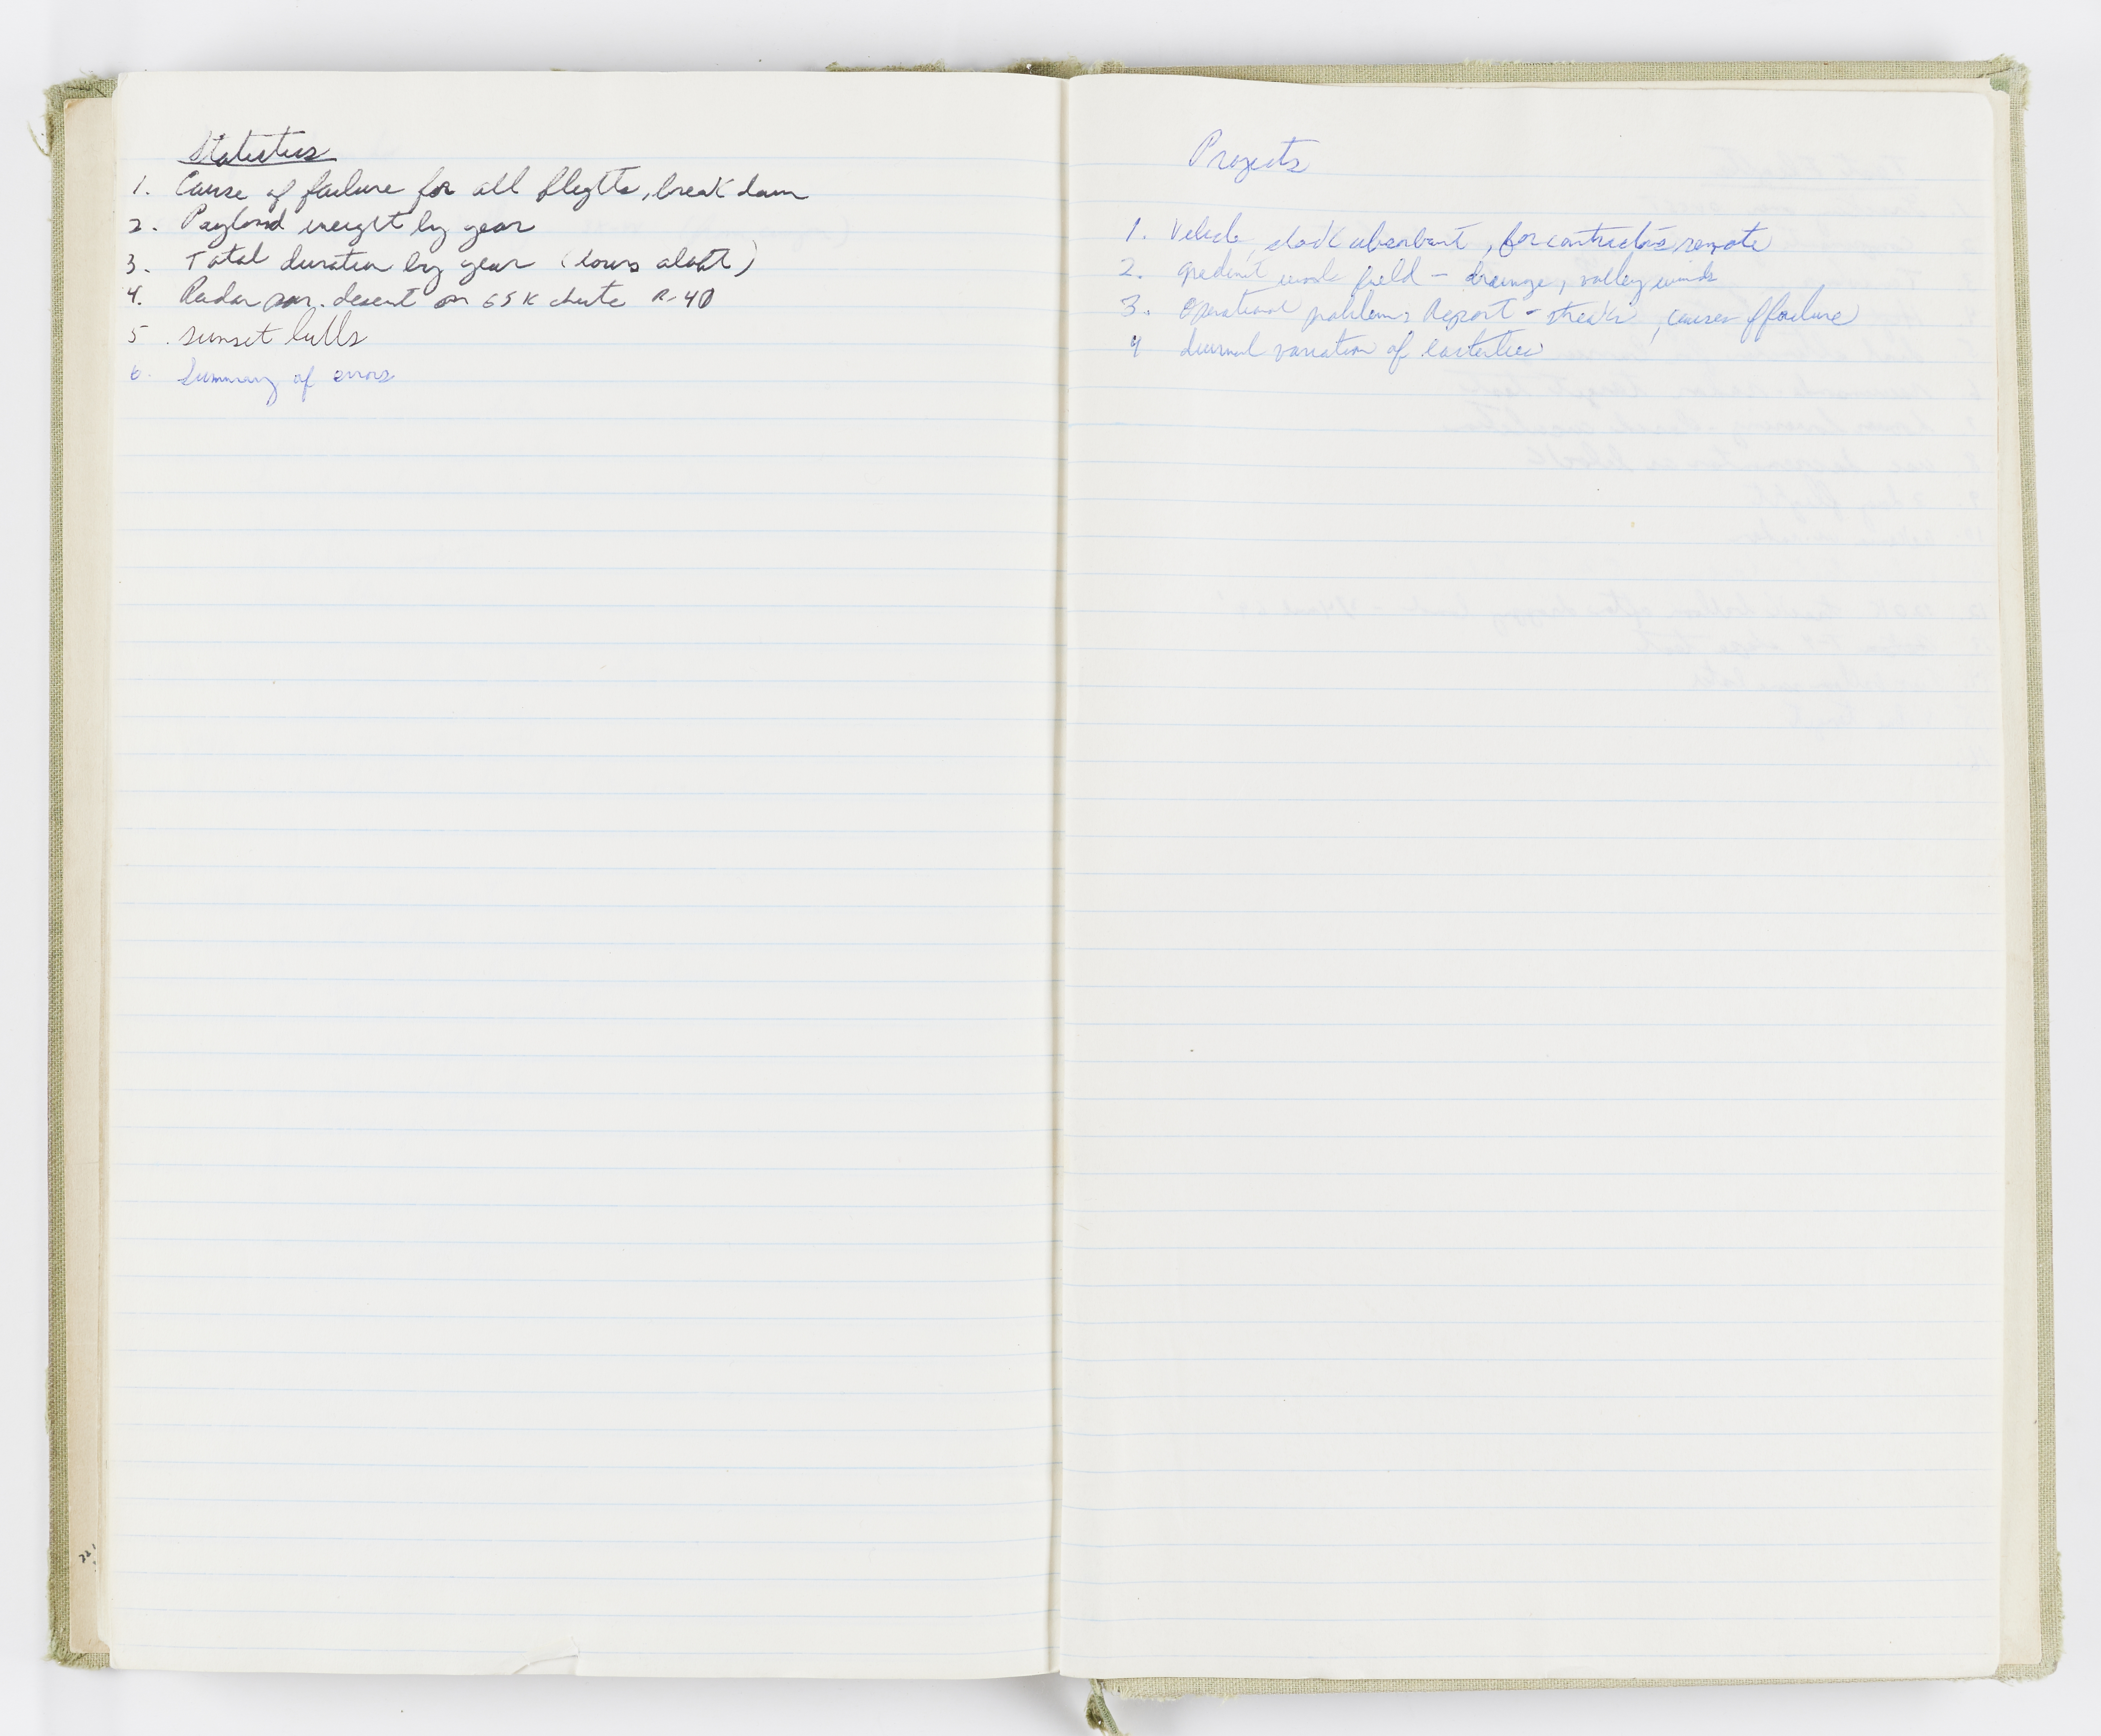 Statistics
1. Cause of failure for all flights, break down
2. Payload weight by year
3. Total duration by year (hours aloft)
4. Radar descent on 65K chute R-40
5. sunset lulls
6. Summary of errors
Projects
1. Vehicle, shock absorbant, for contractors remote
2. gradient winds field - drainage, valley winds
3. Operational problems Report - streaks, causes of failure
4 diurnal variation of easterlies